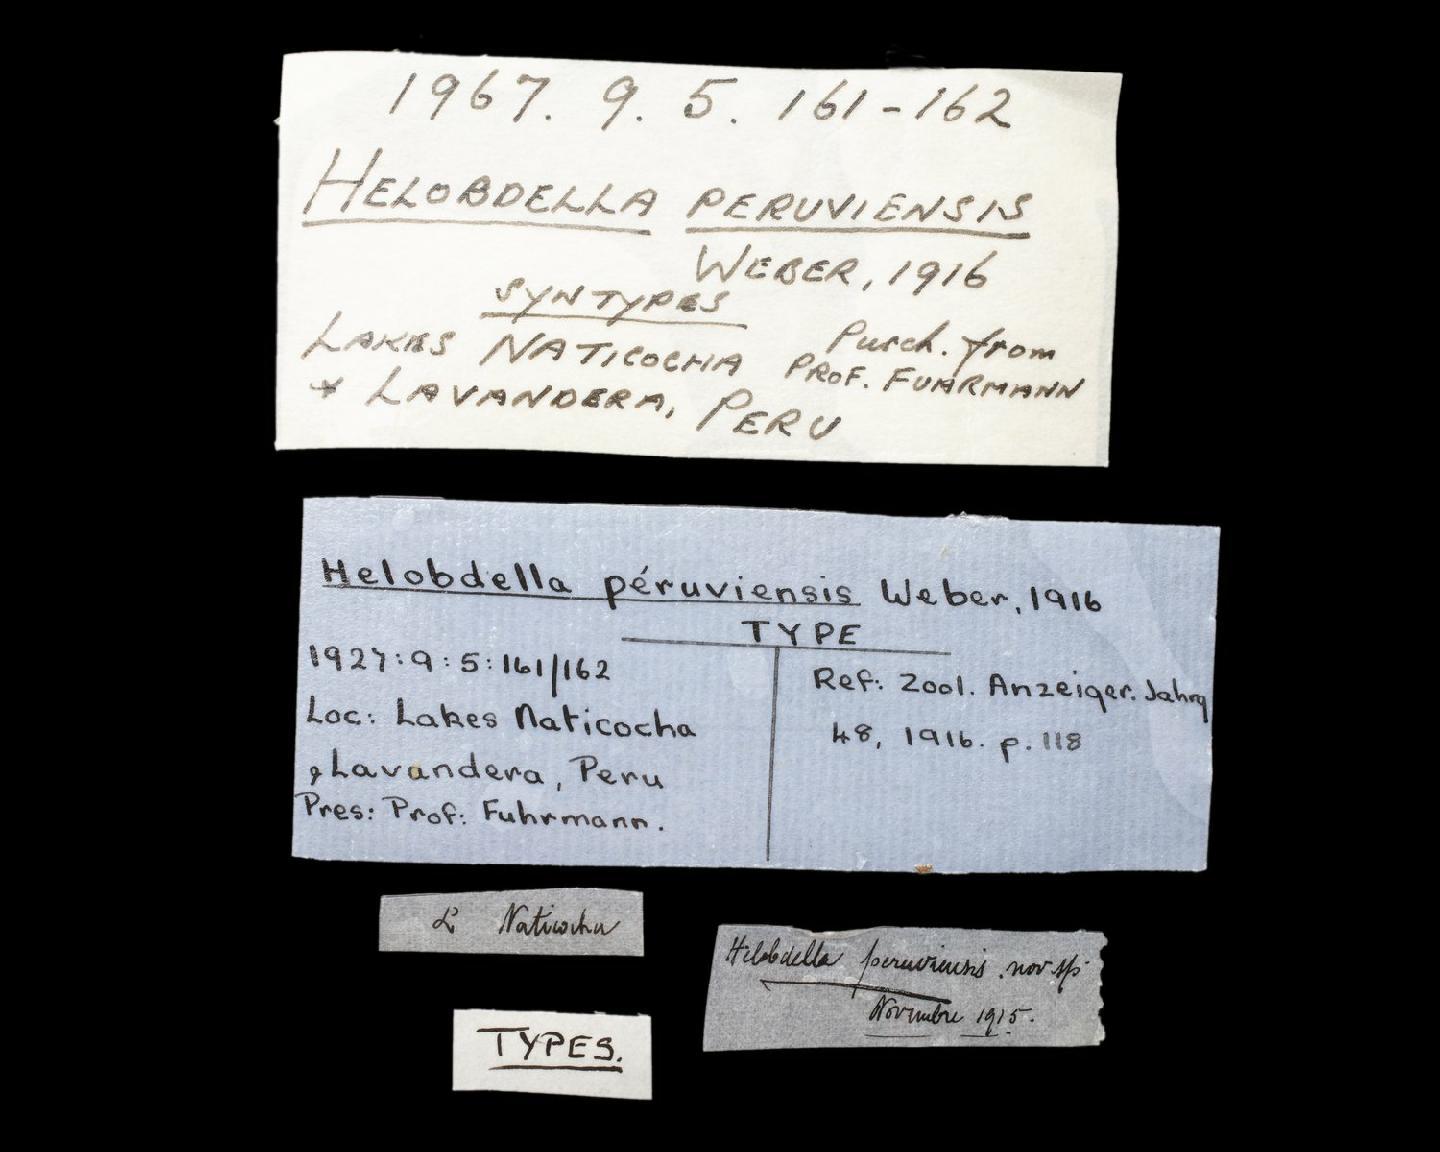 1967. 9. 5. 161-162
HELOBDELLA PERUVIENSIS
WEBER, 1916
SYNTYPES
LAKES NATICOCHA
+ LAVANDERA, PERU
Purch. from
PROF. FUHRMANN
Helobdella péruviensis Weber, 1916
TYPE
1927:9:5:161/162
Loc: Lakes Naticocha
& Lavandera, Peru
Pres: Prof: Fuhrmann.
Ref: Zool. Anzeiger. Jahrg
48, 1916. p. 118
L Naticocha
Helobdella peruviensis. nov sp
Novembre 1915.
TYPES.